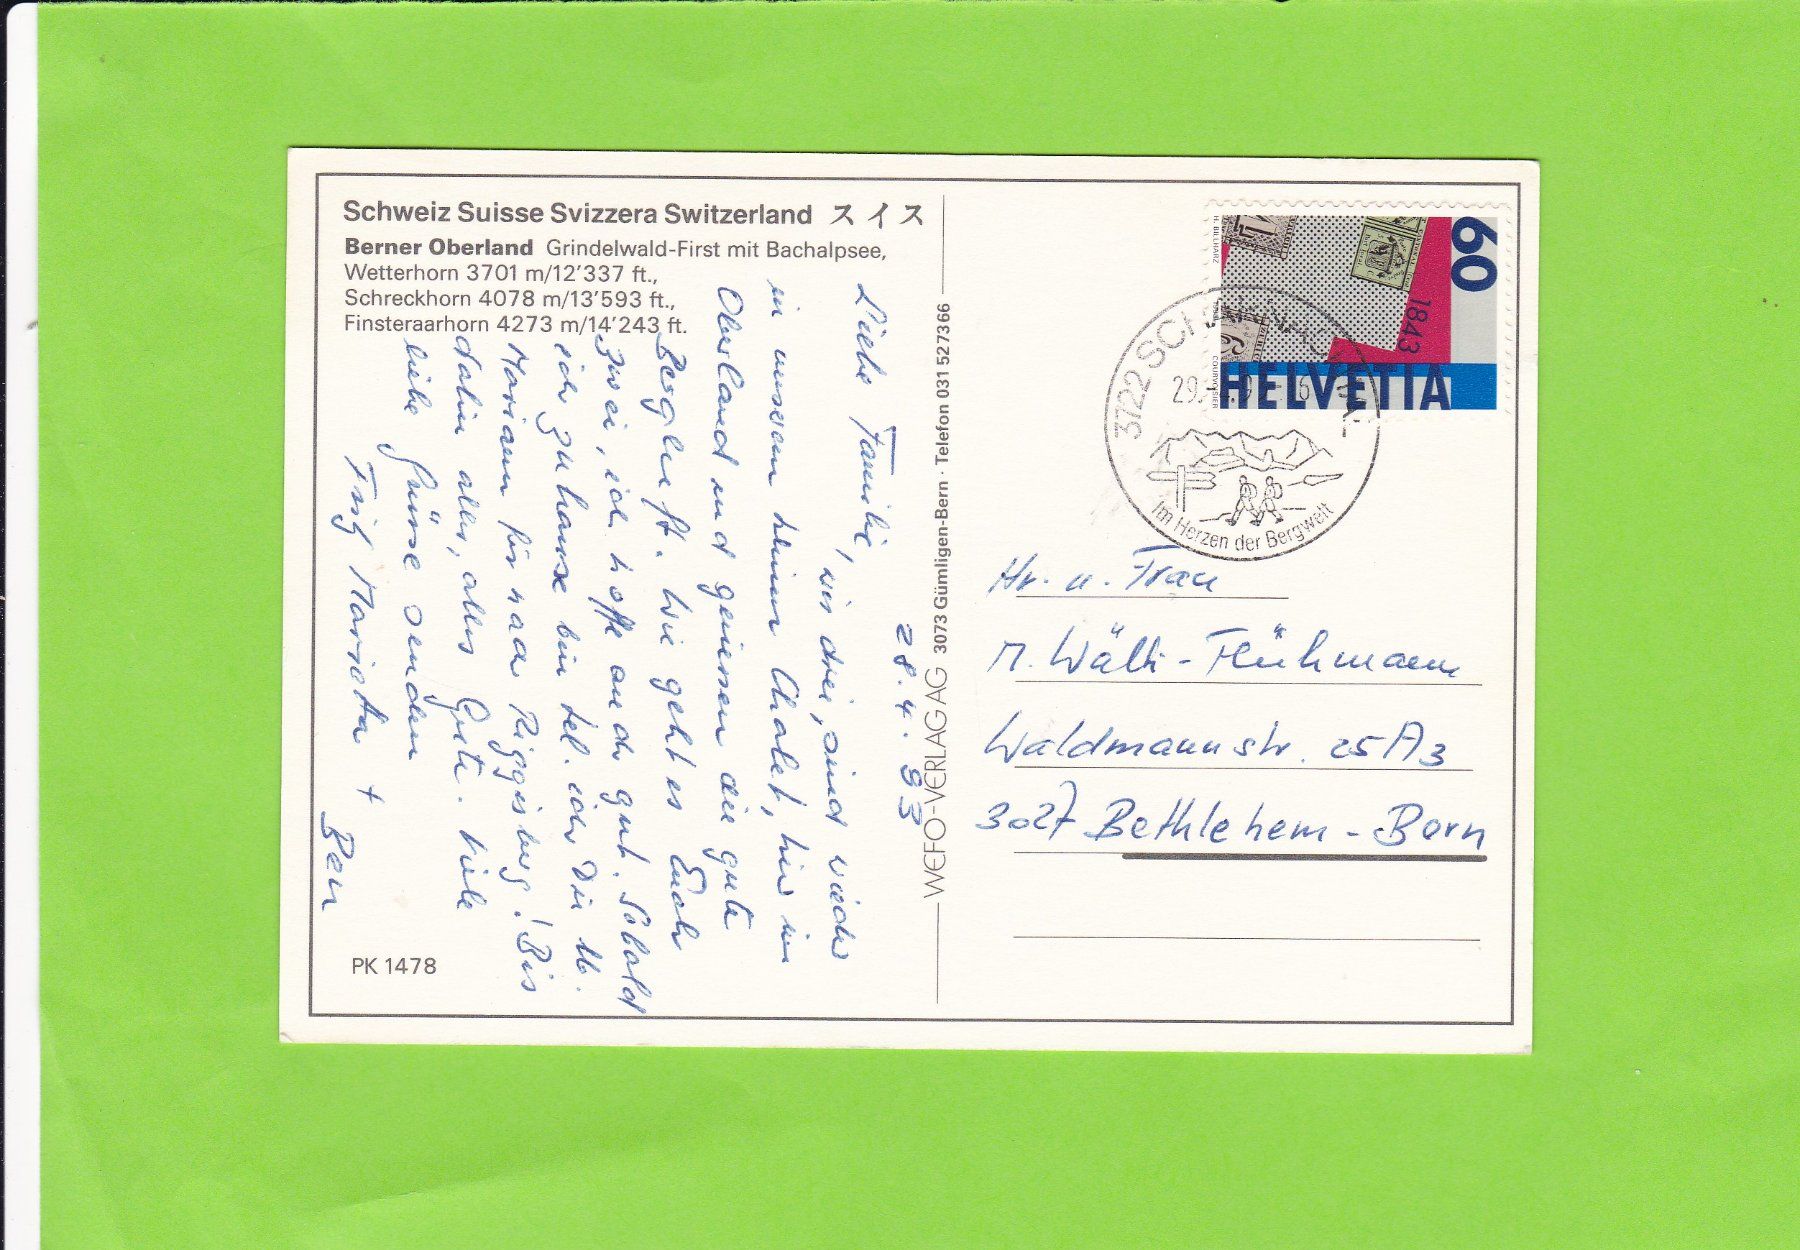 Schweiz Suisse Svizzera Switzerland スイス
Berner Oberland Grindelwald-First mit Bachalpsee,
Wetterhorn 3701 m/12'337 ft.,
Schreckhorn 4078 m/13'593 ft.,
Finsteraarhorn 4273 m/14'243 ft.
28.4.93
Liebe Familie, wir drei, sind wieder
in unserem kleinen Chalet, hier im
Oberland und geniessen die gute
Bergluft. Wie geht es Euch
Zwei, ich hoffe auch gut. Sobald
ich zuhause bin tel. ich Dir
Mariann für nach Riggisberg! Bis
dahin alles, alles Gute. Viele
liebe Grüsse senden
Marietta +
Beny
PK 1478
WEFO-VERLAG AG 3073 Gümligen-Bern · Telefon 031 527366
60
1843
HELVETIA
H. BILLHARZ
COURVOISIER
3722 SCHARNACHTAL
29.4.93
Im Herzen der Bergwelt
Hr. u. Frau
M. Wälti-Flühmann
Waldmannstr. 25A3
3027 Bethlehem-Bern